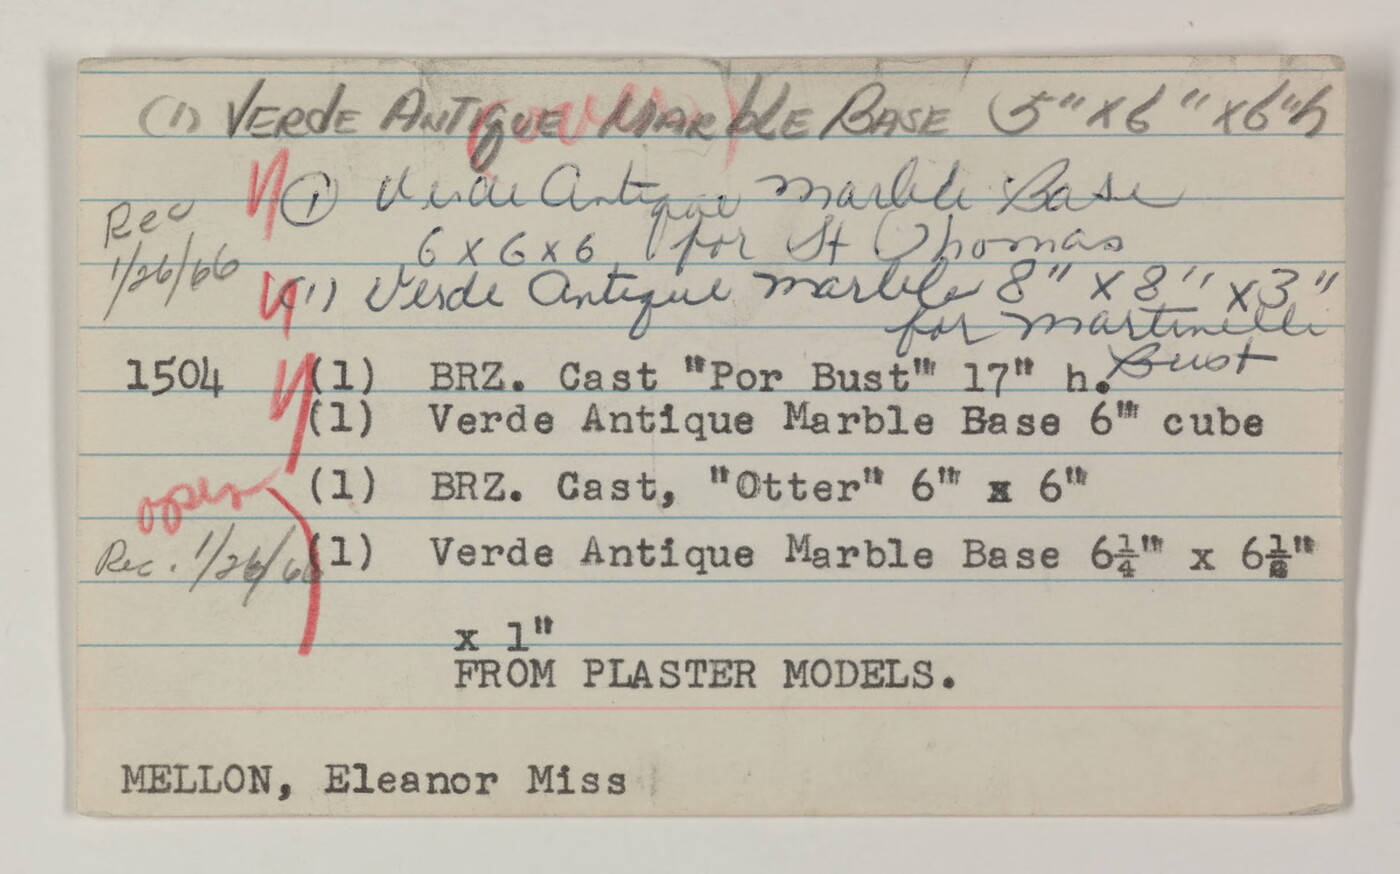 (1) VERDE ANTIQUE MARBLE BASE (5" X 6" X 6"h
① Verde Antique Marble Base
Rec 6 x 6 x 6 for St Thomas
1/26/66 (1) Verde Antique Marble 8" x 8" x 3"
for Martinelli
Bust
1504 (1) BRZ. Cast "Por Bust"' 17" h.
(1) Verde Antique Marble Base 6"' cube
open (1) BRZ. Cast, "Otter" 6"' x 6"
Rec. 1/26/66 (1) Verde Antique Marble Base 6¼"' x 6½"'
x 1"
FROM PLASTER MODELS.
MELLON, Eleanor Miss